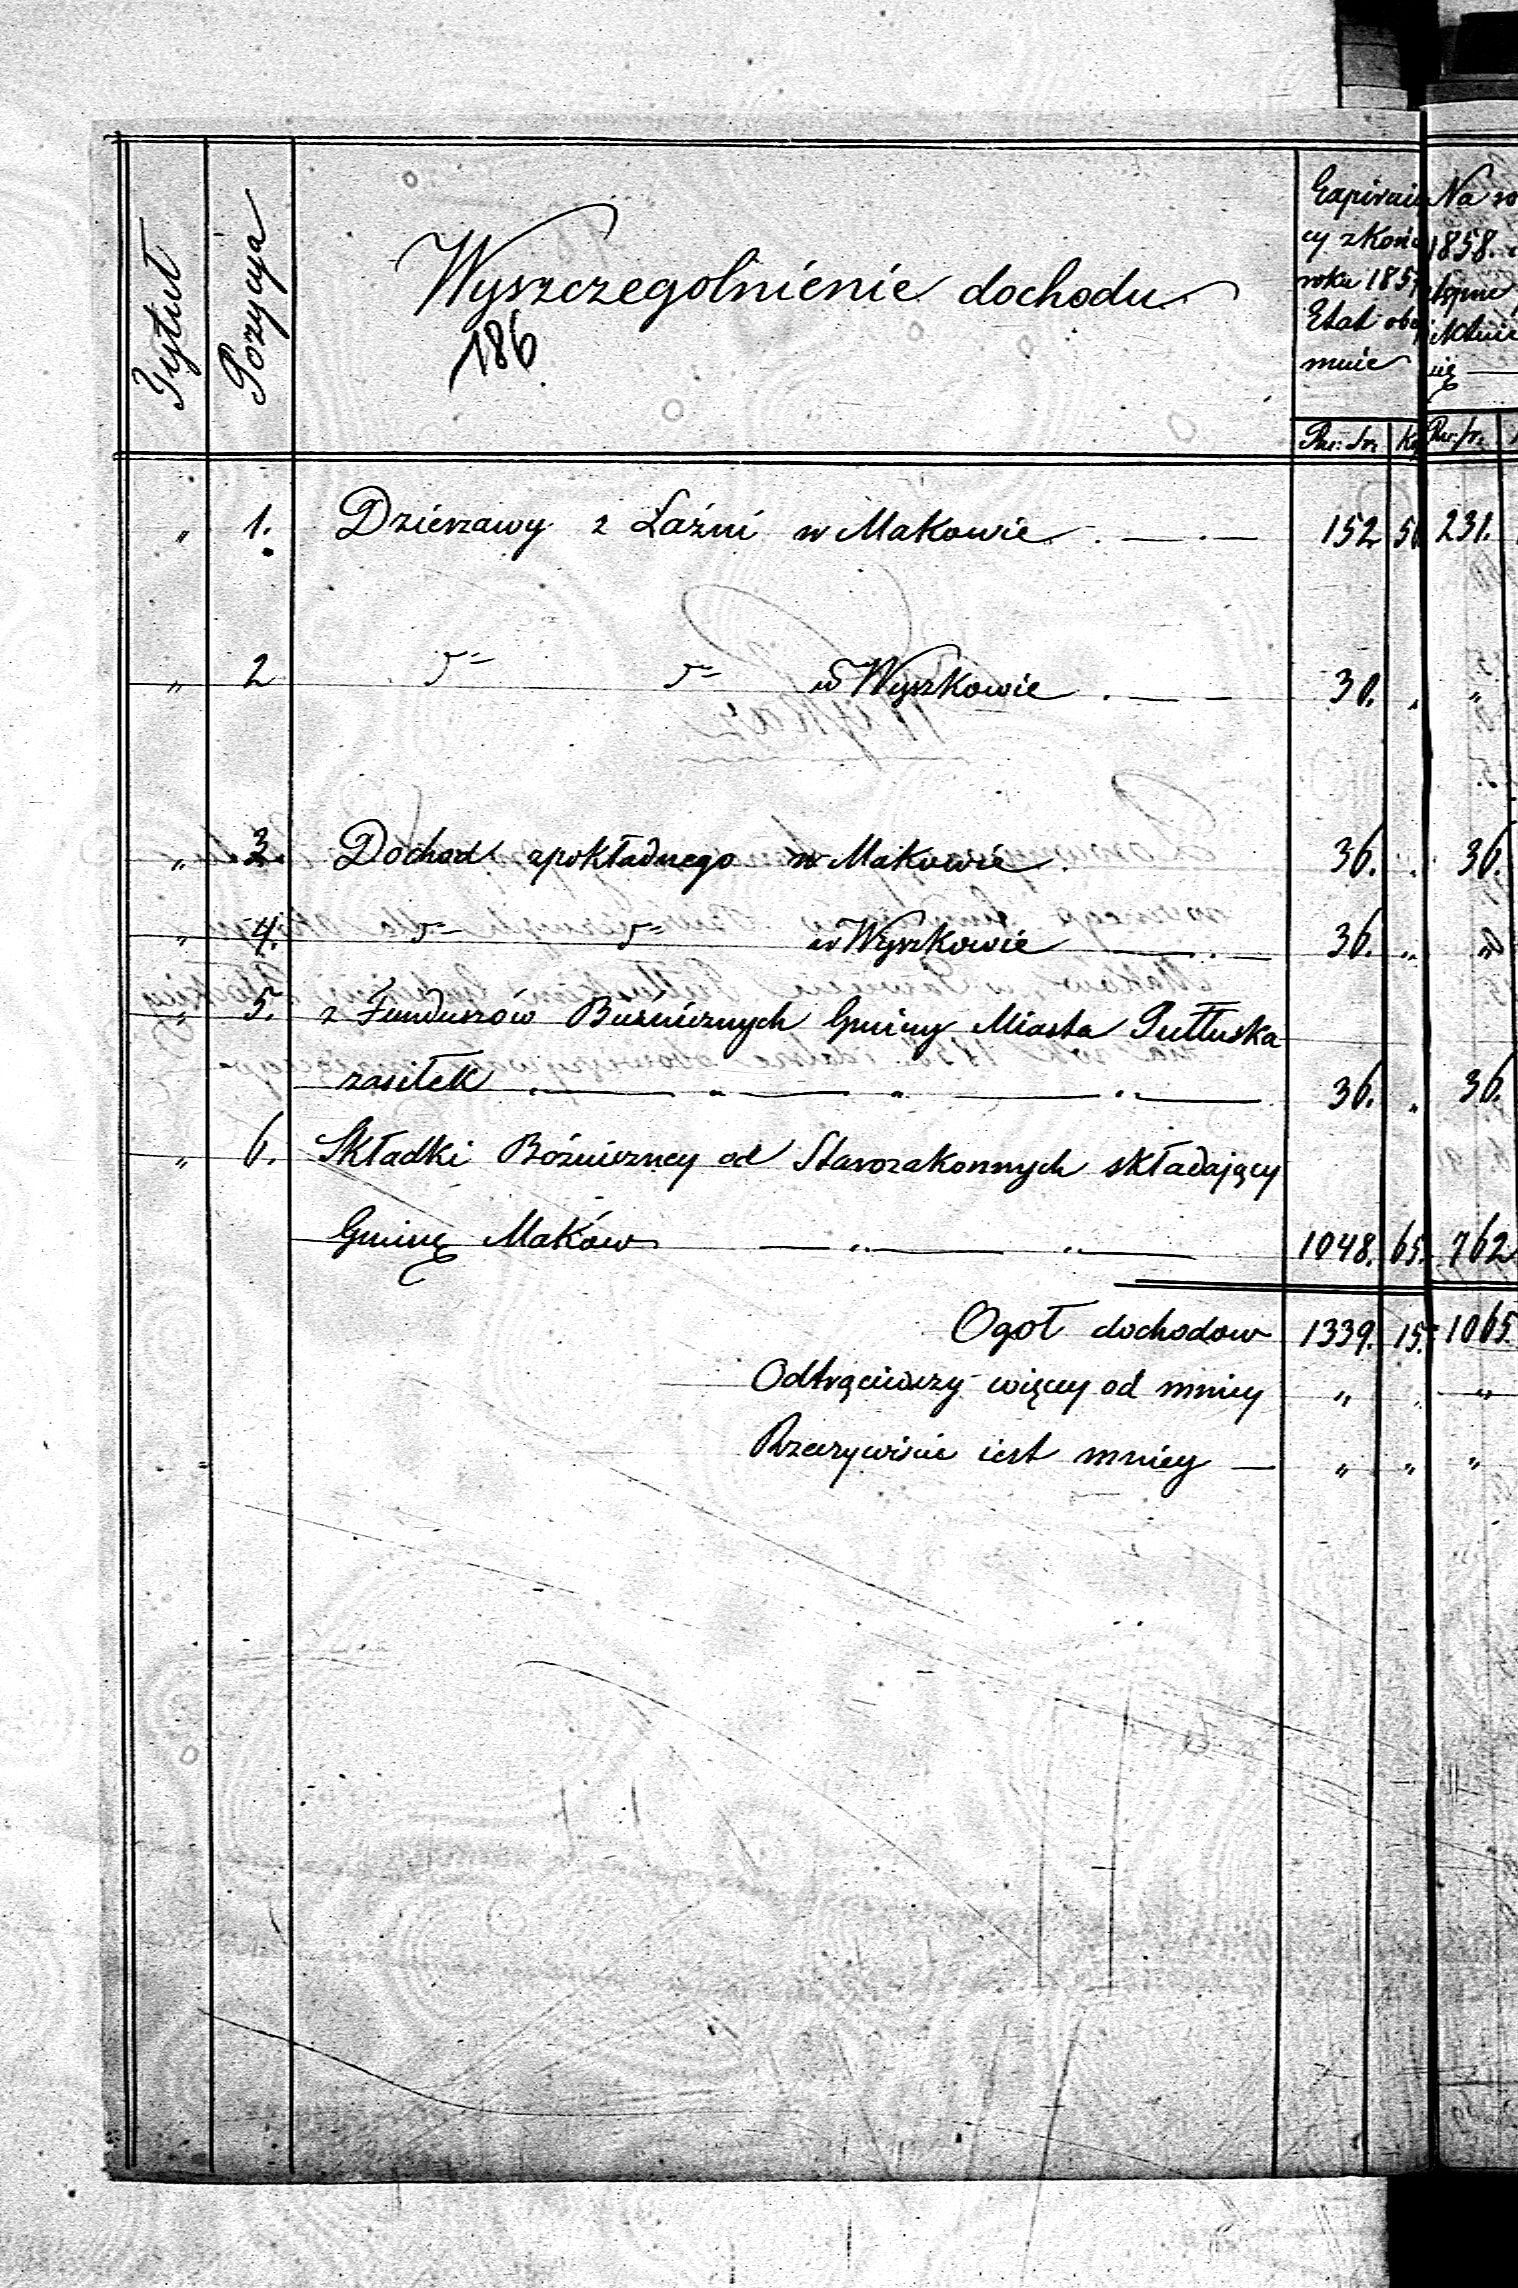 Tytuł
Pozycya
Wyszczegolnienie dochodu
186
cy z Koń
roku 1857
Etat obey
muie
Na ro
1858.
Rsr. sr. Ko Rsr. sr.
" 1. Dzierzawy z Łaźni w Makowie . — . — 152 50 231.
" 2 w Wyszkowie . — — 30. . "
" 3. Dochod z pokładnego w Makowie . 36. . 36.
" 4. w Wyszkowie — . — 36. " "
" 5. z Funduszów Bużnicznych Gminy Miasta Pułtuska
zasiłek . — " — " — " — 36. . 36.
" 6. Składki Bóżniczney od Starozakonnych składaiący
Gminę Maków — " — " — 1048. 65. 762
Ogoł dochodow 1339. 15. 1065
Odtrąciwszy więcey od mniey " " "
Rzeczywiście iest mniey — " " "